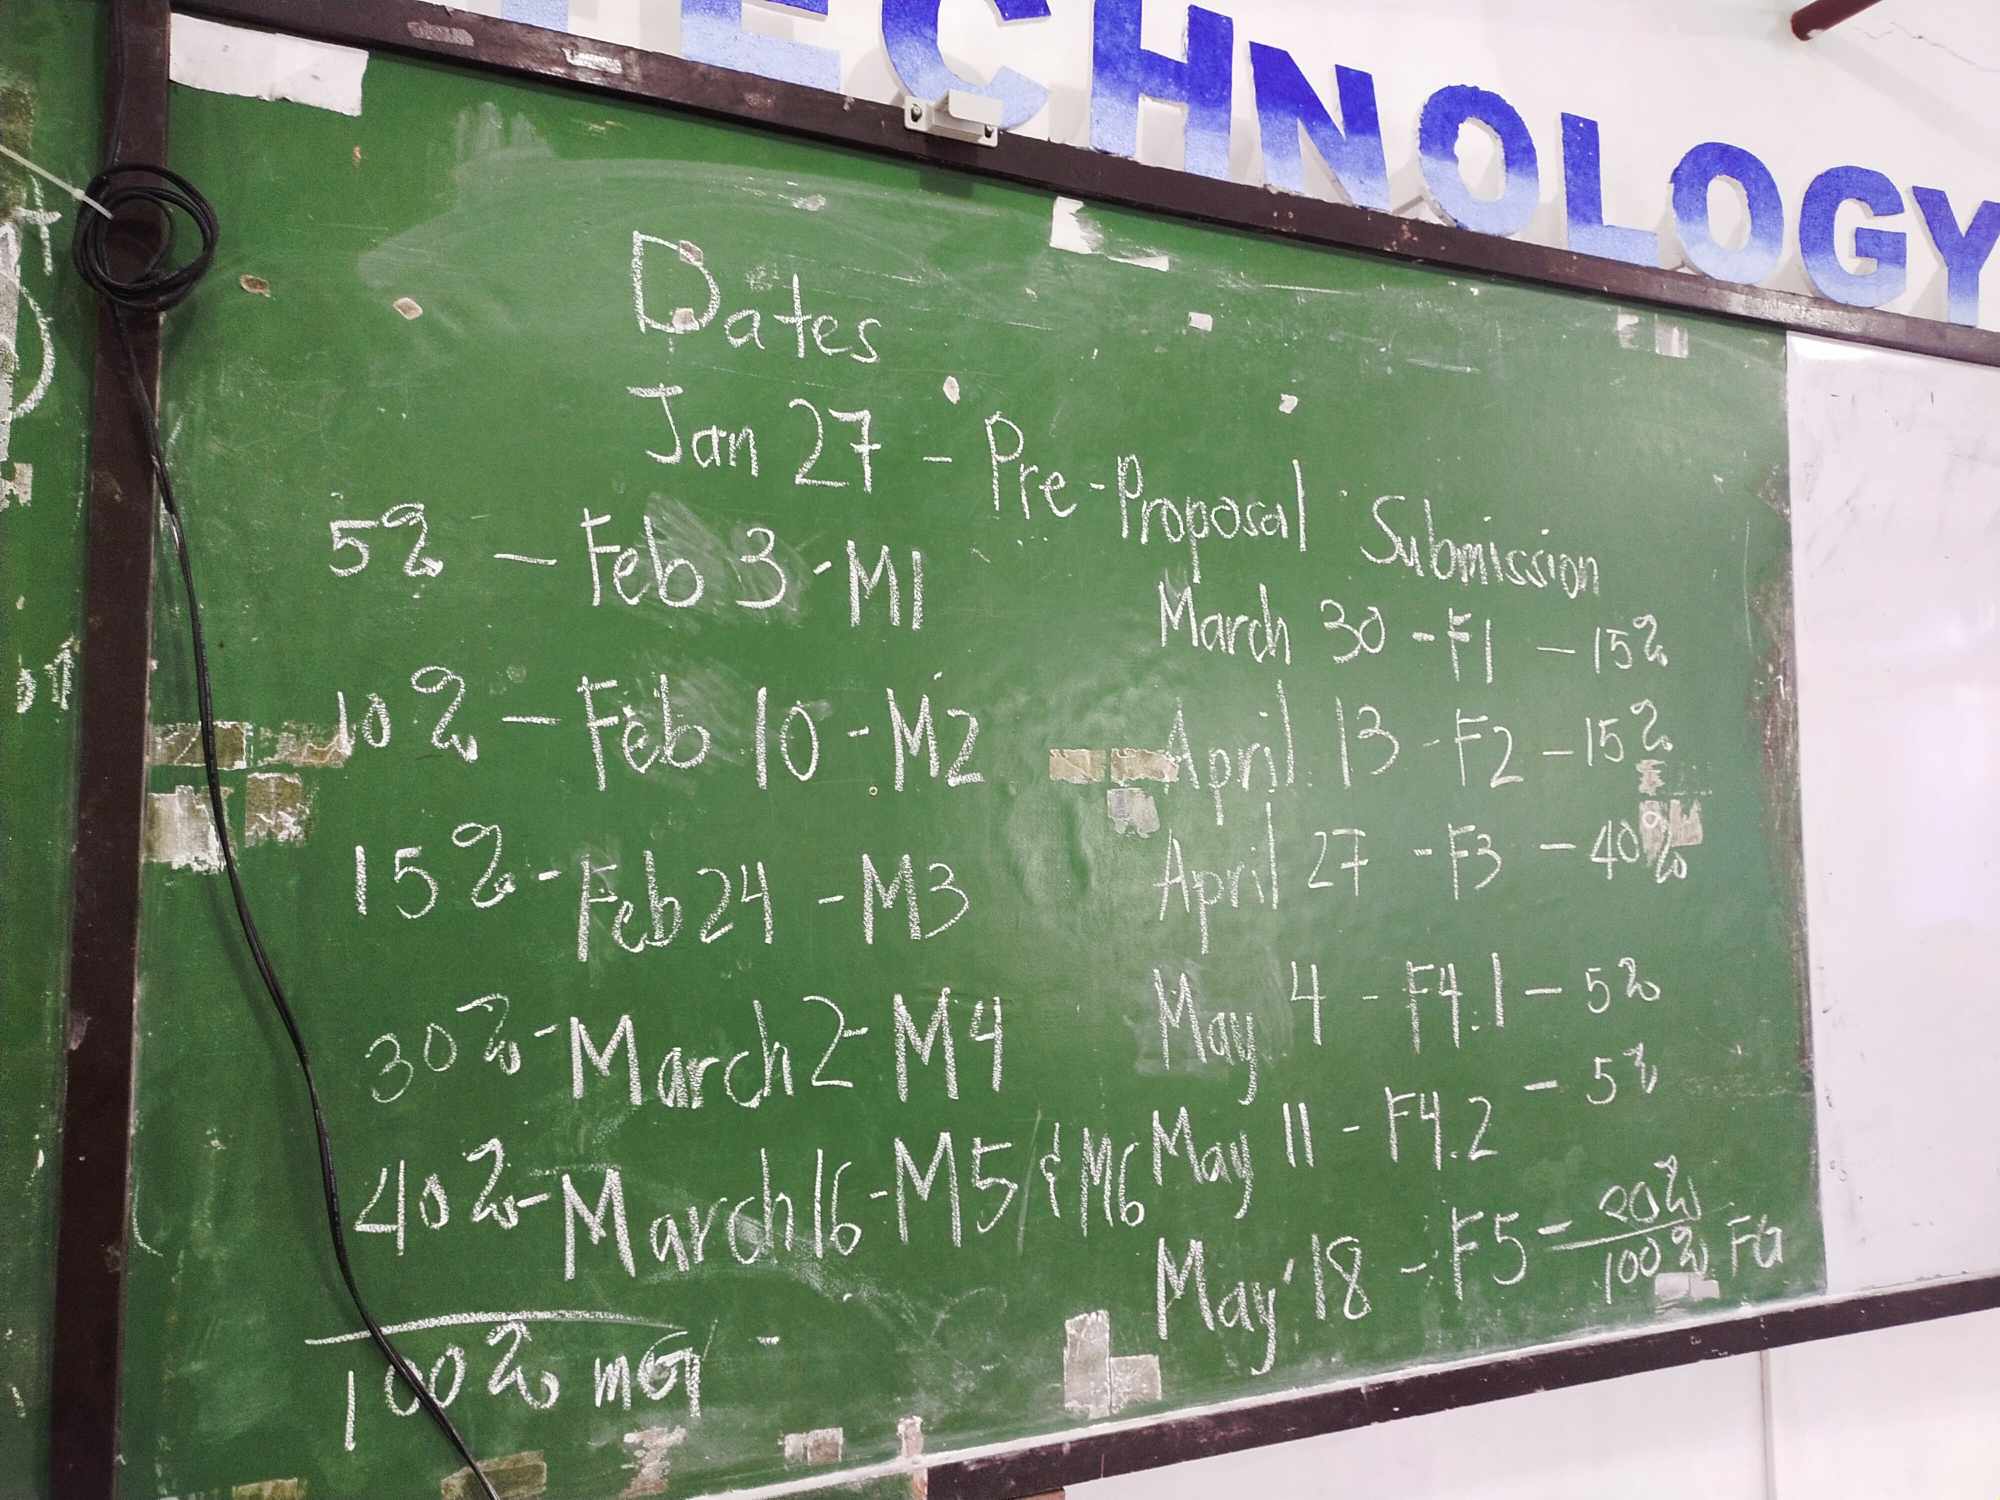 TECHNOLOGY
Dates
Jan 27 - Pre-Proposal Submission
5% - Feb 3 - M1
10% - Feb 10 - M2
15% - Feb 24 - M3
30% - March 2 - M4
40% - March 16 - M5 & M6
100% MG
March 30 - F1 - 15%
April 13 - F2 - 15%
April 27 - F3 - 40%
May 4 - F4.1 - 5%
May 11 - F4.2 - 5%
May 18 - F5 - 20%
100% FG